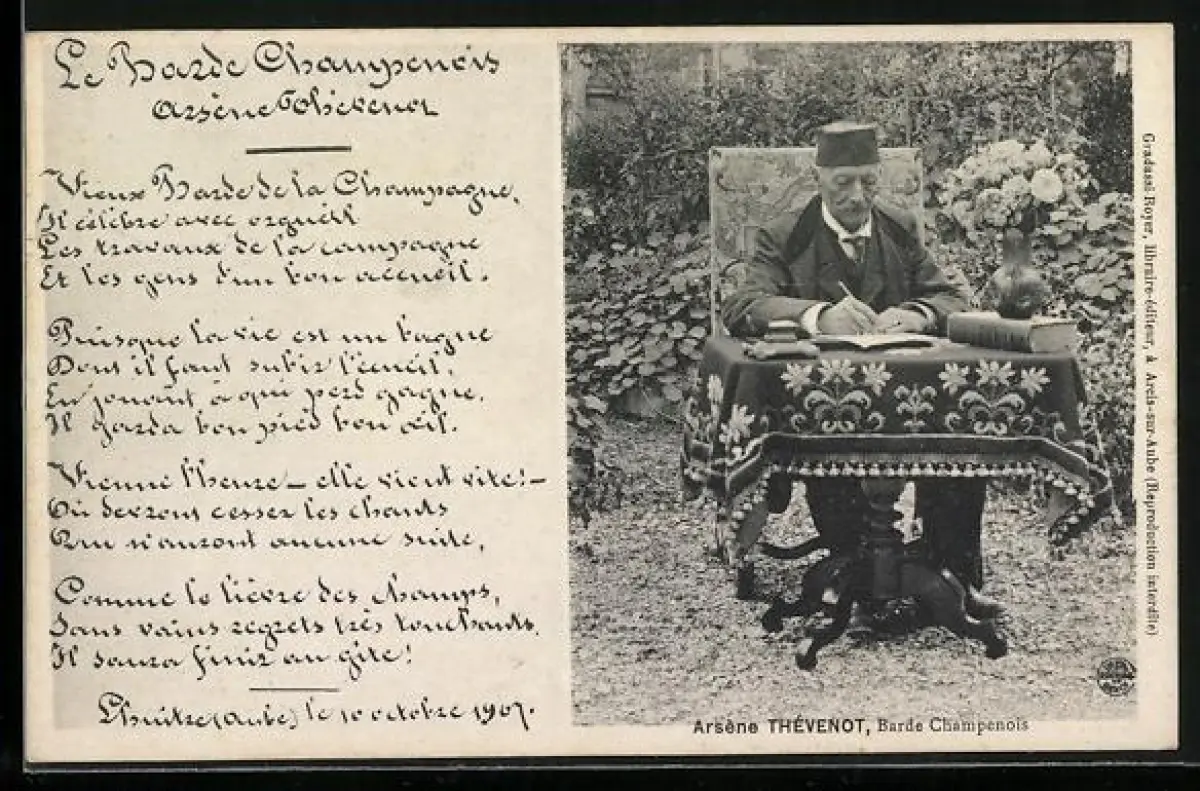 Le Barde Champenois
Arsène Thévenot
Vieux Barde de la Champagne,
Il célèbre avec orgueil
Les travaux de la campagne
Et les gens d'un bon accueil.
Puisque la vie est un bagne
Dont il faut subir l'écueil,
En jouant à qui perd gagne,
Il garda bon pied bon œil.
Vienne l'heure _ elle vient vite! _
Où devront cesser les chants
Qui n'auront aucune suite,
Comme le lièvre des champs,
Sans vains regrets très touchants,
Il saura finir au gîte!
Lhuître (Aube) le 10 octobre 1907.
Arsène THÉVENOT, Barde Champenois
Gradassi-Royer, libraire-éditeur, à Arcis-sur-Aube (Reproduction interdite)